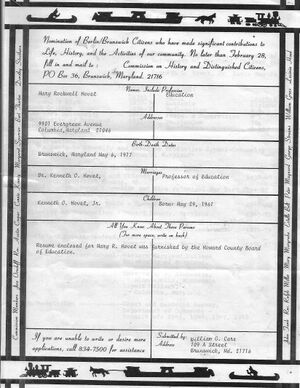 Nomination of Berlin/Brunswick Citizens who have made significant contributions to
Life, History, and the Activities of our community. No later than February 28,
fill in and mail to: Commission on History and Distinguished Citizens,
PO Box 36, Brunswick, Maryland. 21716
Names, Include Profession
Mary Rockwell Hovet Education
Addresses
9101 Evergreen Avenue
Columbia, Maryland 21046
Birth-Death Dates
Brunswick, Maryland May 6, 1977
Marriages
Dr. Kenneth O. Hovet, Professor of Education
Children
Kenneth O. Hovet, Jr. Born: May 29, 1967
All You Know About These Persons
(For more space, write on back)
Resume enclosed for Mary R. Hovet was furnished by the Howard County Board
of Education.
If you are unable to write or desire more
applications, call 834-7500 for assistance
Submitted by:
Address
William O. Carr
709 A Street
Brunswick, Md. 21716